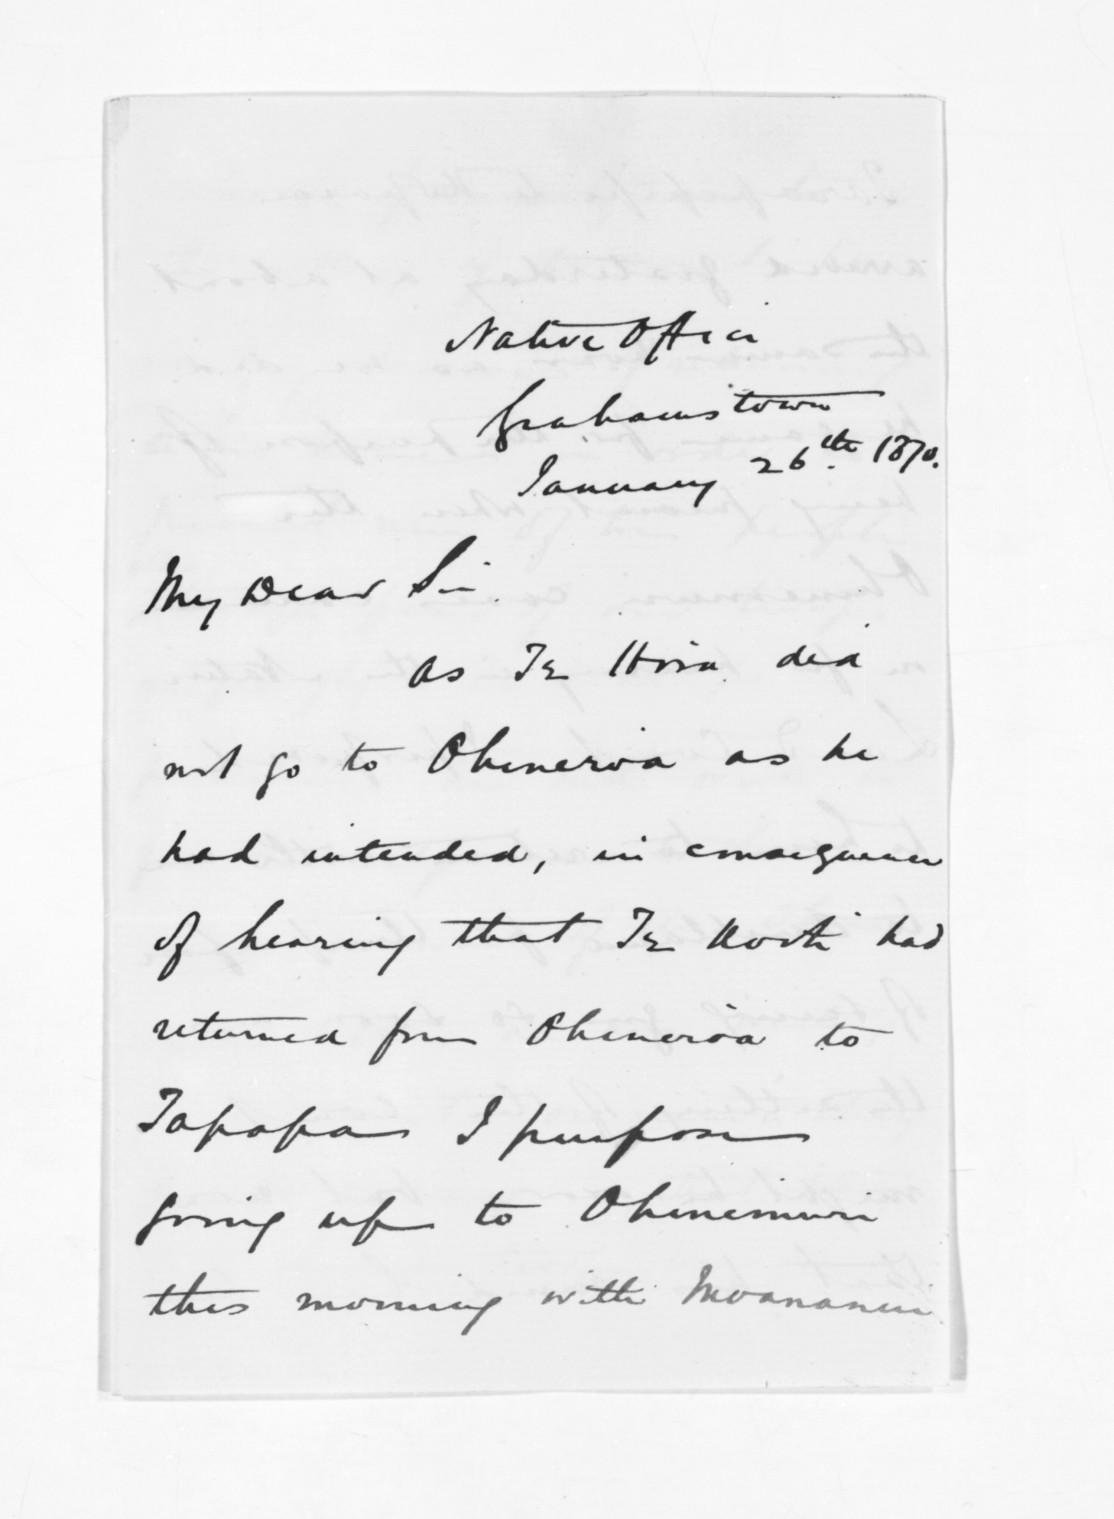 Native Office
Grahamstown
January 26th. 1870.
My Dear Sir.
As Te Hira did
not go to Ohineroa as he
had intended, in consequence
of hearing that Te Kooti had
returned from Ohineroa to
Tapapa I purpose
going up to Ohinemuri
this morning with Moananui